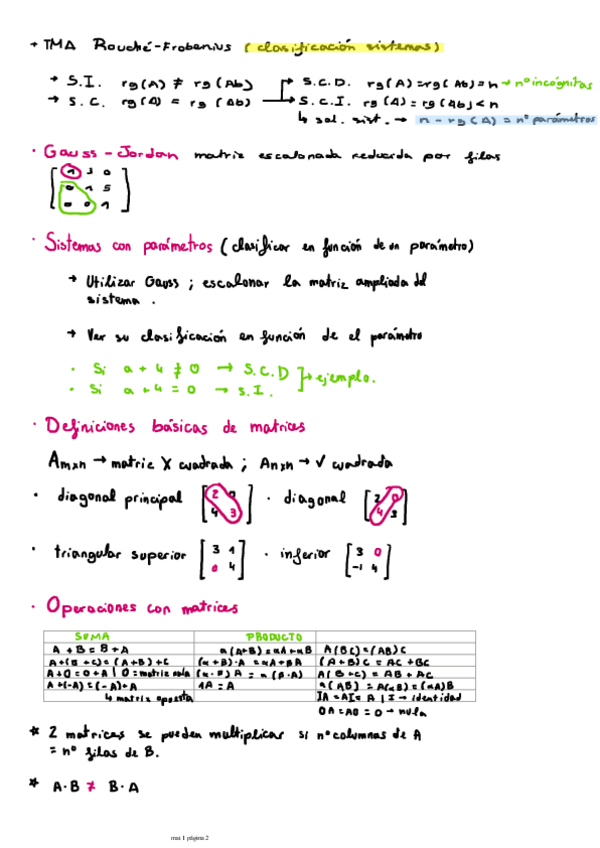 → TMA Rouché-Frobenius (clasificación sistemas)
→ S.I. rg(A) ≠ rg(Ab)
→ S.C. rg(A) = rg(Ab)
→ S.C.D. rg(A)=rg(Ab)=n → nº incógnitas
→ S.C.I. rg(A)=rg(Ab)<n
↳ sol. sist. → n - rg(A) = nº parámetros
· Gauss-Jordan matriz escalonada reducida por filas
1 3 0
0 1 5
0 0 1
· Sistemas con parámetros (clasificar en función de un parámetro)
→ Utilizar Gauss ; escalonar la matriz ampliada del
sistema.
→ Ver su clasificación en función de el parámetro
· Si a + 4 ≠ 0 → S.C.D
· Si a + 4 = 0 → S.I.
→ ejemplo.
· Definiciones básicas de matrices
Amxn → matriz X cuadrada ; Anxn → √ cuadrada
· diagonal principal
2 0
4 3
· diagonal
2 0
4 3
· triangular superior
3 1
0 4
· inferior
3 0
-1 4
· Operaciones con matrices
SUMA
PRODUCTO
A + B = B + A
α(A+B) = αA + αB
A(BC)=(AB)C
A+(B+C)=(A+B)+C
(α+β)·A = αA+βA
(A+B)C = AC + BC
A+0=0+A | 0=matriz nula
(α·β)A = α(β·A)
A(B+C) = AB + AC
A+(-A)=(-A)+A
1A = A
α(AB) = A(αB)=(αA)B
↳ matriz opuesta
IA=AI= A | I → identidad
0A=A0=0 → nula
* 2 matrices se pueden multiplicar si nº columnas de A
= nº filas de B.
* A·B ≠ B·A
mat 1 página 2